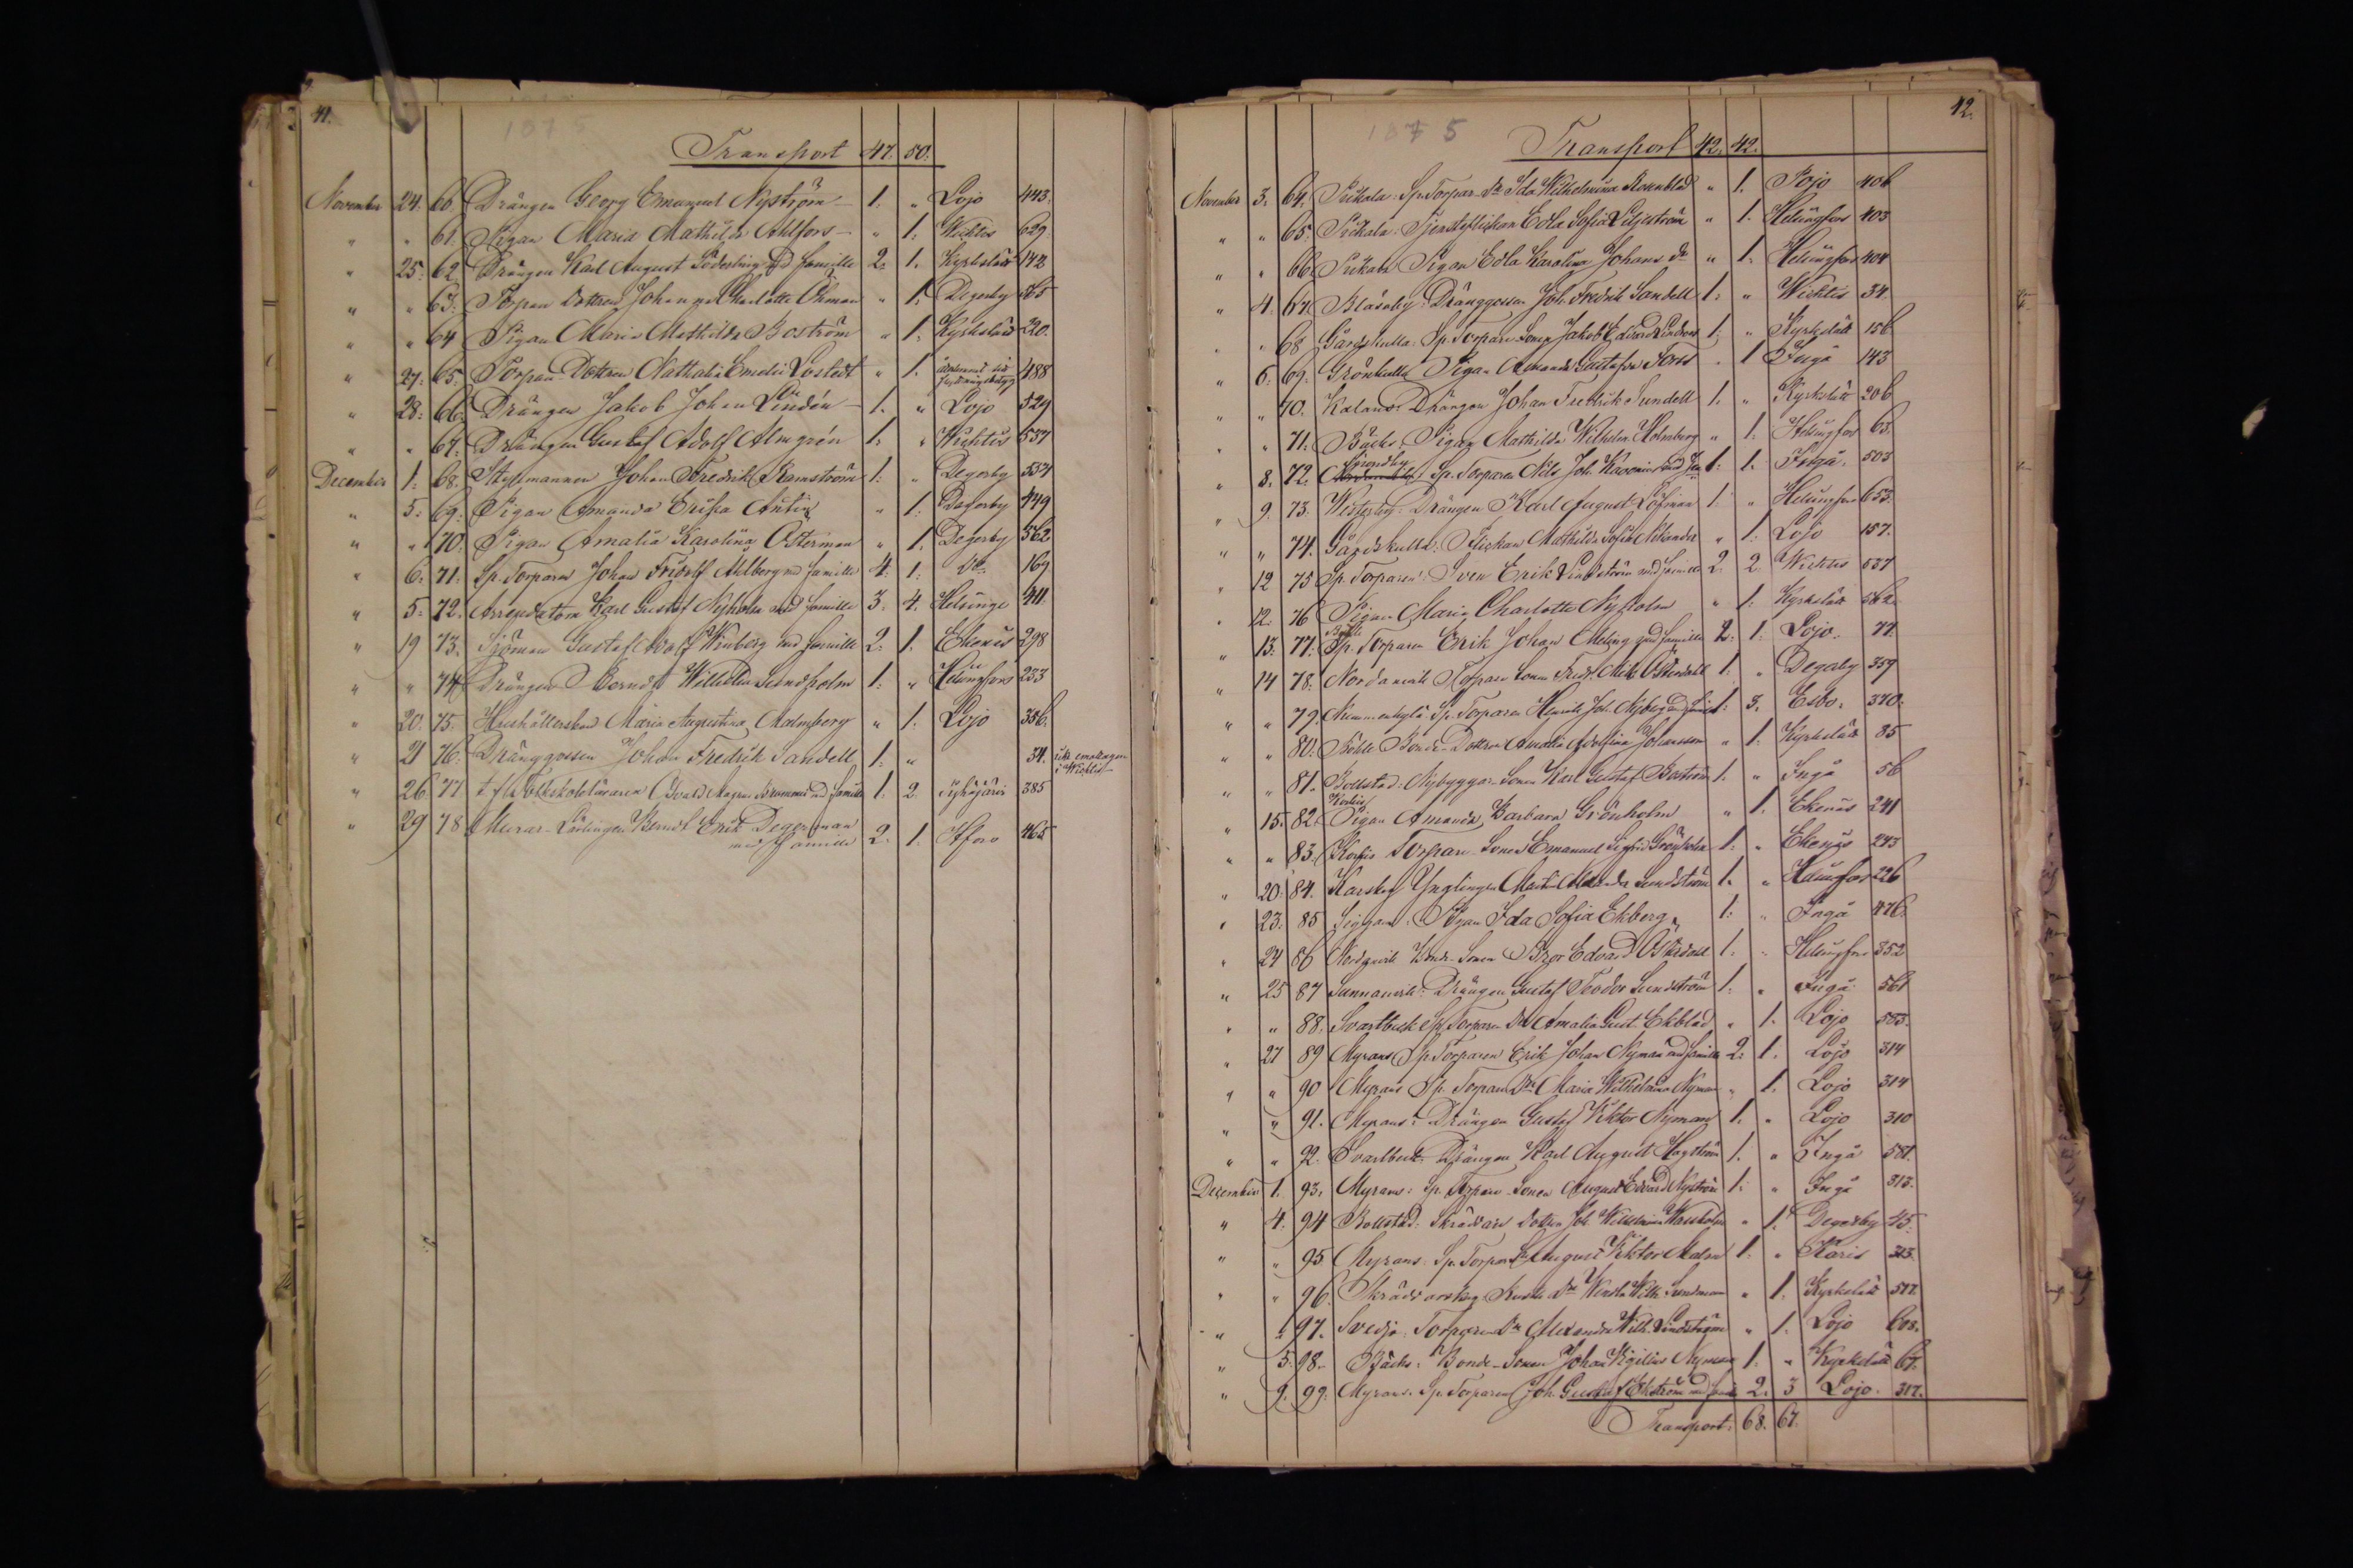 41.
1875
Transport 47. 50.
November 24. 60. Drängen Georg Emanuel Nyström — 1. " Lojo 443.
" " 61. Pigan Maria Mathilda Ahlfors — " 1. Wichtis 629.
" 25. 62. Drängen Karl August Söderling md familie 2. 1. Kyrkslätt 142
" " 63. Torpare Dottren Johanna Charlotte Öhman " 1. Degerby 365
" " 64 Pigan Maria Mathilda Boström " 1. Kyrkslätt 220.
" 27. 65. Torpare Dottren Nathalia Emelie Lostedt " 1. 488
" 28. 66. Drängen Jakob Johan Lindén — 1. " Lojo 529
" " 67. Drängen Gustaf Adolf Almgrén 1. " Wichtis 537
December 1. 68. Styrmannen Johan Fredrik Ramström 1. " Degerby 334
" 5. 69. Pigan Amanda Erika Antin " 1. Degerby 449
" " 70. Pigan Amalia Karolina Österman " 1. Degerby 362.
" 6. 71. Sp. Torparen Johan Fridolf Ahlberg md familie 4. 1. Do 169
" 5. 72. Arrendatorn Karl Gustaf Nyholm med familie 3. 4. Helsinge 411.
" 19 73. Sjöman Gustaf Adolf Winberg md familie 2. 1. Ekenäs 298
" " 74. Drängen Berndt Wilhelm Lindholm 1. " Helsingfors 233
" 20. 75. Hushållerskan Maria Augustina Malmberg " 1. Lojo 356.
" 21 76. Dränggossen Johan Fredrik Sandell 1. " 34. icke emottagen i Wichtis
" 26 77 Folkskoleläraren Osvald Magnus md familie 1. 2. 385
" 29 78 Murar-Lärlingen Berndt Erik Degerman
med familie 2. 1. 465
42.
1875
Transport 42. 42.
November 3. 64. Pickala: Sp. Torpar-Dr Ida Wilhelmina Rosenblad " 1. Pojo 406
" " 65. Pickala: Tjensteflickan Edla Sofia Liljeström " 1. Helsingfors 403
" " 66. Pickala Pigan Edla Karolina Johans dr " 1. Helsingfors 404
" 4. 67. Blåsaby: Dränggossen Joh. Fredrik Sandell 1. " Wichtis 34.
" " 68 Gårdskulla: Sp. Torpare Sonen Jakob Edvard 1. " Kyrkslätt 156
" 6. 69. Grönkulla Pigan Amanda Gustafva Forss " 1 Ingå 143
" " 70. Kalans: Drängen Johan Fredrik Sundell 1. " Kyrkslätt 206
" " 71. Bäcks: Pigan Mathilda Wilhelm. Holmberg " 1. Helsingfors 63.
" 8. 72. Sp. Torparen Nils Joh. med 1. 1. Ingå. 503
" 9. 73. Westerby: Drängen Karl August Löfman 1. " Helsingfors 653.
" " 74. Gårdskulla: Flickan Mathilda Sofia " 1. Lojo 157.
" 12 75 Sp. Torparen Sven Erik Lindström md familie 2. 2. Wichtis 537
" 12. 76 Pigan Maria Charlotte Nyholm " 1. Kyrkslätt 562.
" 13. 77. Sp. Torparen Erik Johan Ekling md familie 2. 1. Lojo. 77.
" 14 78. Nordanvik Torpare Sonen Fredr. Österdahl 1. " Degerby 359
" " 79. Nummenkylä: Sp. Torparen Henrik Joh. Nyberg md fam. 1. 3. Esbo. 370.
" " 80. Böhle Bonde-Dottren Amalia Adolfina Johansson " 1. Kyrkslätt 85
" " 81. Bollstad: Nybyggar-Sonen Karl Gustaf Boström 1. " Ingå 56
" 15. 82. Pigan Amanda Barbara Grönholm " 1. Ekenäs 241
" " 83. Torpare-Sonen Emanuel Sigfrid Grönholm 1. " Ekenäs 243
" 20. 84. Karskog Ynglingen Alexander Lundström 1. " Helsingfors 226
" 23. 85 Siggans: Pigan Ida Sofia Ekberg 1. " Ingå 476.
" 24 86 Nordanvik Bonde-Sonen Edvard Österdahl 1. " Helsingfors 352
" 25 87 Sunnanvik: Drängen Gustaf Teodor Lundström 1. " Ingå 561
" " 88. Svartbeck Sp. Torpare Dr Amalia Gust. Ekblad " 1. Lojo 583.
" 27 89 Myrans Sp. Torparen Erik Johan Nyman md familie 2. 1. Lojo 314
" " 90 Myrans Sp. Torpare Dr Maria Wilhelmina Nyman " 1. Lojo 314
" " 91. Myrans: Drängen Gustaf Viktor Nyman 1. " Lojo 310
" " 92. Svartbeck: Drängen Karl August Hagström 1. " Ingå 581.
December 1. 93. Myrans: Sp. Torpare-Sonen August Edvard Nyström 1. " Ingå 313.
" 4. 94 Bollstad: Skräddare Dottren Joh. Wilhelmina " 1. Degerby 45.
" " 95 Myrans: Sp. Torpare Sn August Viktor Malm 1. " Karis 313.
" " 96. Skräddarskog Dr Wendla Wilh. Sundman " 1. Kyrkslätt 517.
" " 97. Svedja: Torpare Dr Alexandra Wilh. Lindström " 1. Lojo 608.
" 5. 98. Bäcks: Bonde-Sonen Johan Vigilius Nyman 1. " Kyrkslätt 67.
" 9. 99. Myrans: Sp. Torparen Joh. Gustaf Ekström md familie 2. 3 Lojo. 317.
Transport: 68. 67.